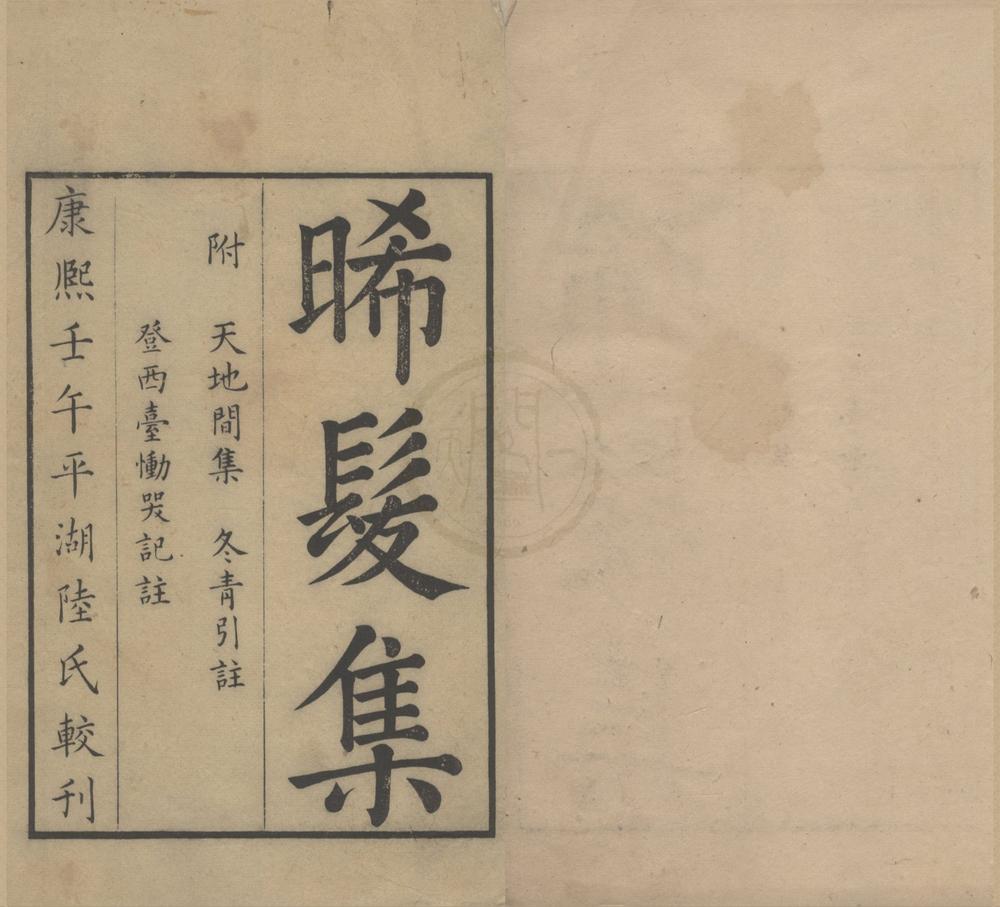 晞髮集
附　天地間集　冬青引註
登西臺慟哭記註
康熙壬午平湖陸氏較刊